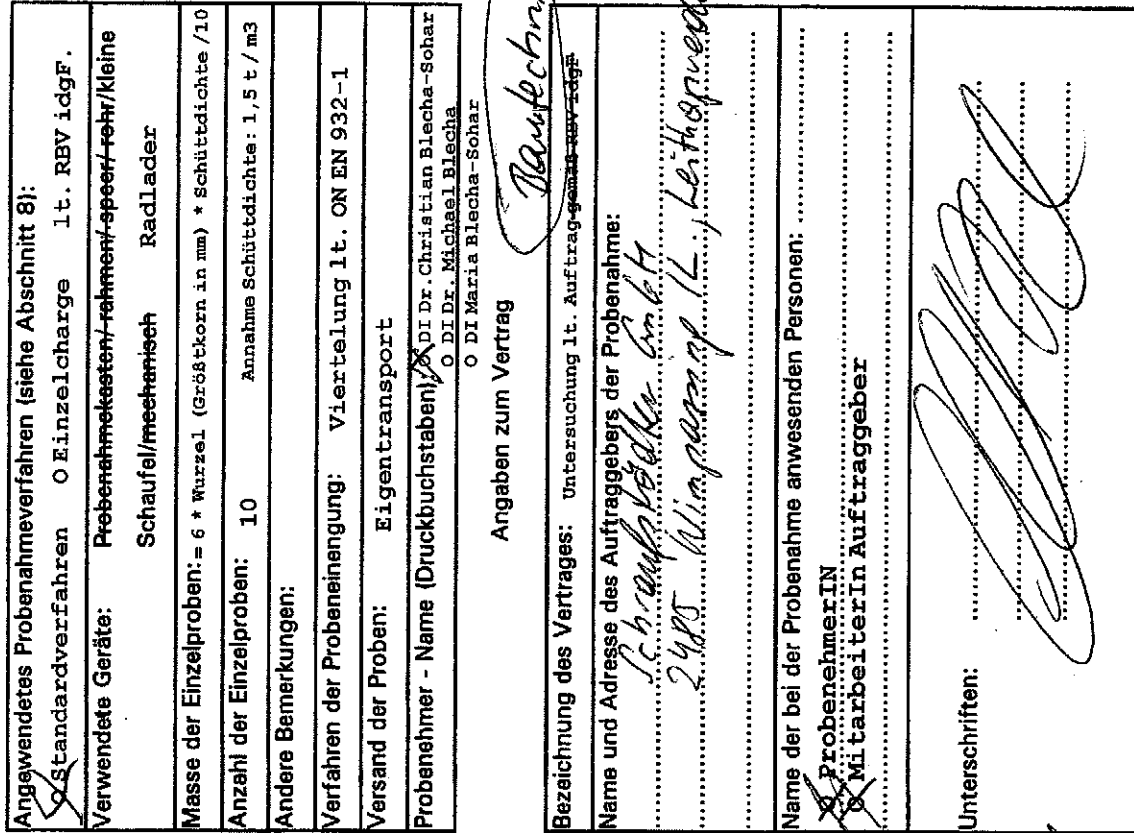 Angewendetes Probenahmeverfahren (siehe Abschnitt 8):
O Standardverfahren O Einzelcharge lt. RBV idgF.
Verwendete Geräte: Probenahmekasten/ rahmen/ speer/ rohr/kleine
Schaufel/mechanisch Radlader
Masse der Einzelproben: = 6 * Wurzel (Größtkorn in mm) * Schüttdichte /10
Anzahl der Einzelproben: 10 Annahme Schüttdichte: 1,5 t / m3
Andere Bemerkungen:
Verfahren der Probeneinengung: Viertelung lt. ON EN 932-1
Versand der Proben: Eigentransport
Probenehmer - Name (Druckbuchstaben): O DI Dr. Christian Blecha-Sohar
O DI Dr. Michael Blecha
O DI Maria Blecha-Sohar
Angaben zum Vertrag
Bautechn.
Bezeichnung des Vertrages: Untersuchung lt. Auftrag gemäß RBV idgF
Name und Adresse des Auftraggebers der Probenahme:
GmbH
2485 Wimpassing /L.,
Name der bei der Probenahme anwesenden Personen:
O ProbenehmerIN
O MitarbeiterIn Auftraggeber
Unterschriften: